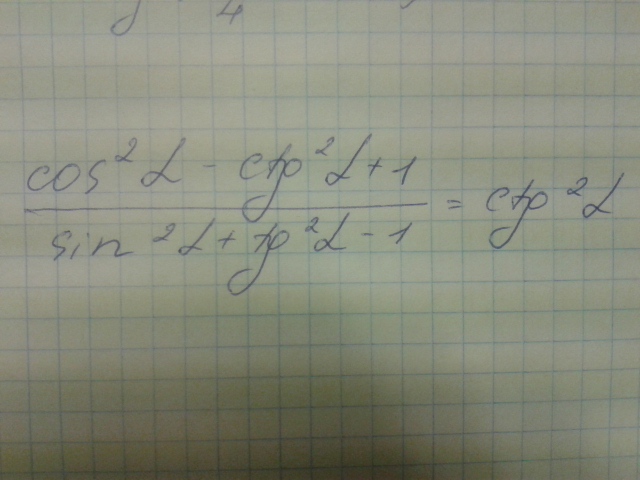 4
cos²α - ctg²α + 1
sin²α + tg²α - 1 = ctg²α